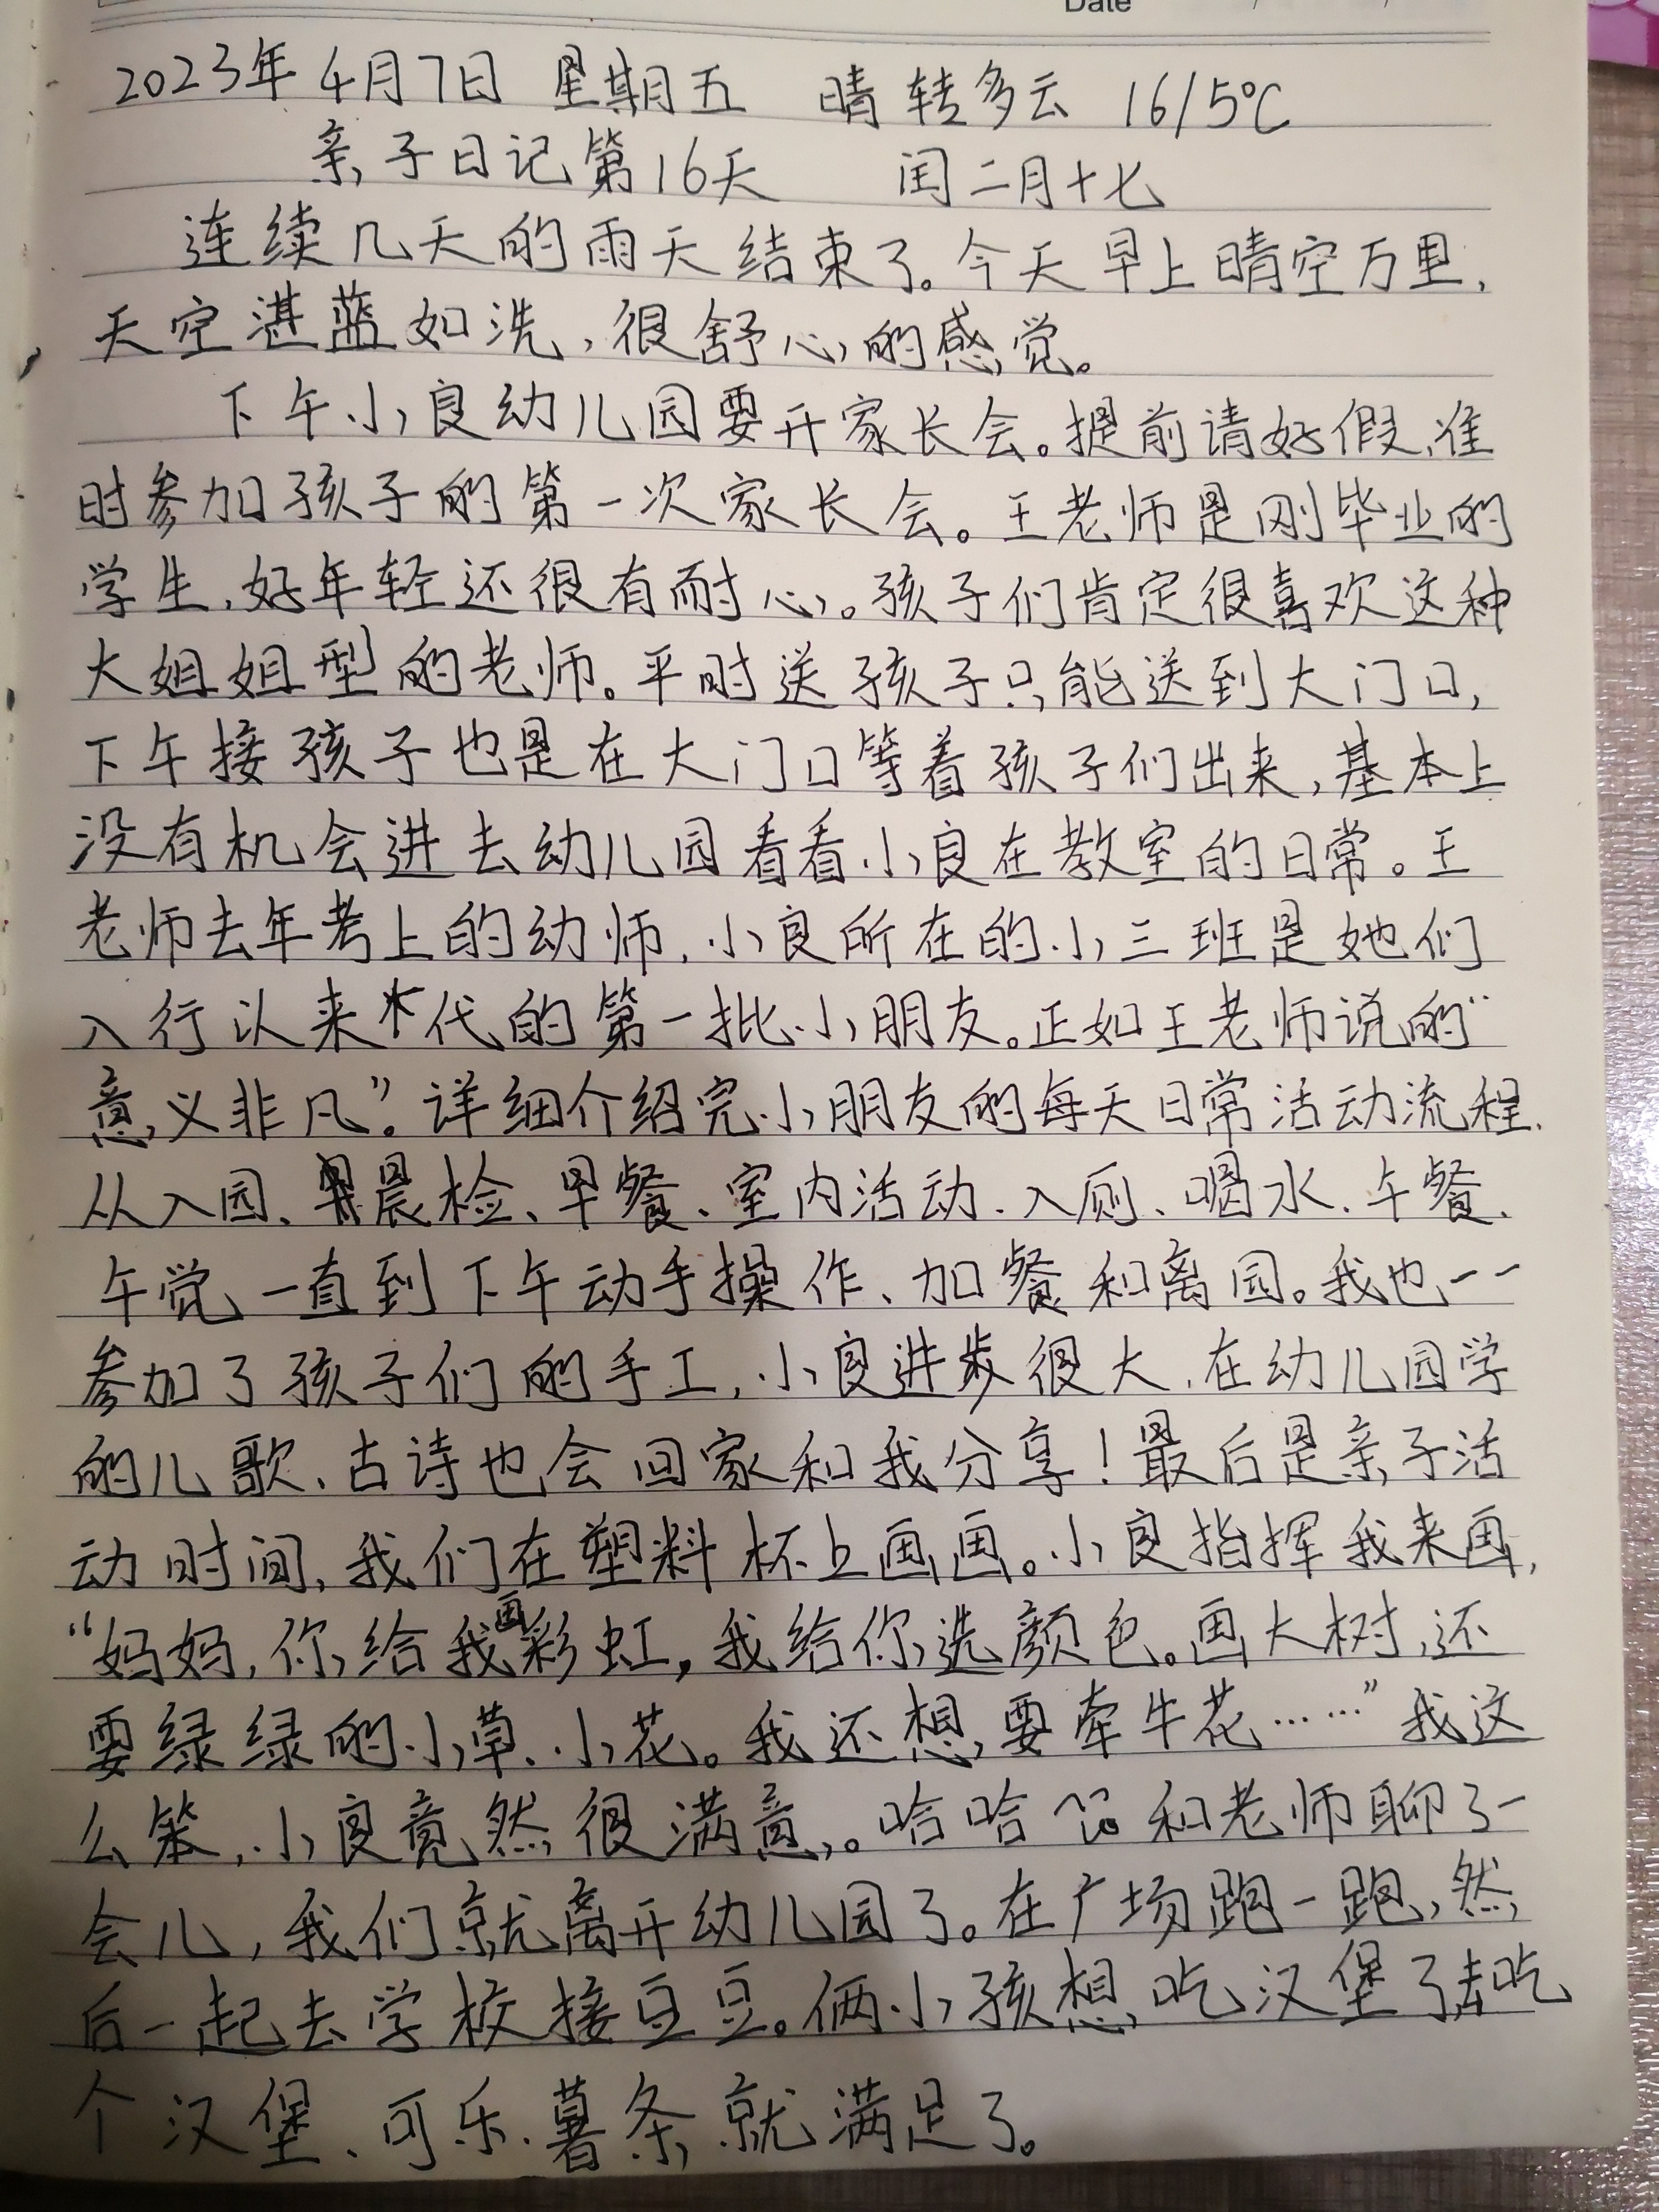 Date
2023年4月7日 星期五 晴转多云 16/5℃
亲子日记第16天 闰二月十七
连续几天的雨天结束了。今天早上晴空万里,
天空湛蓝如洗,很舒心的感觉。
下午小良幼儿园要开家长会。提前请好假,准
时参加孩子的第一次家长会。王老师是刚毕业的
学生,好年轻还很有耐心。孩子们肯定很喜欢这种
大姐姐型的老师。平时送孩子只能送到大门口,
下午接孩子也是在大门口等着孩子们出来,基本上
没有机会进去幼儿园看看小良在教室的日常。王
老师去年考上的幼师,小良所在的小三班是她们
入行以来代的第一批小朋友。正如王老师说的“
意义非凡”。详细介绍完小朋友的每天日常活动流程.
从入园、晨检、早餐、室内活动、入厕、喝水、午餐、
午觉一直到下午动手操作、加餐和离园。我也一一
参加了孩子们的手工,小良进步很大,在幼儿园学
的儿歌、古诗也会回家和我分享!最后是亲子活
动时间,我们在塑料杯上画画。小良指挥我来画,
“妈妈,你给我画彩虹,我给你选颜色。画大树,还
要绿绿的小草、小花。我还想要牵牛花……”我这
么笨,小良竟然很满意。哈哈 和老师聊了一
会儿,我们就离开幼儿园了。在广场跑一跑,然
后一起去学校接豆豆。俩小孩想吃汉堡了,去吃
个汉堡、可乐、薯条就满足了。